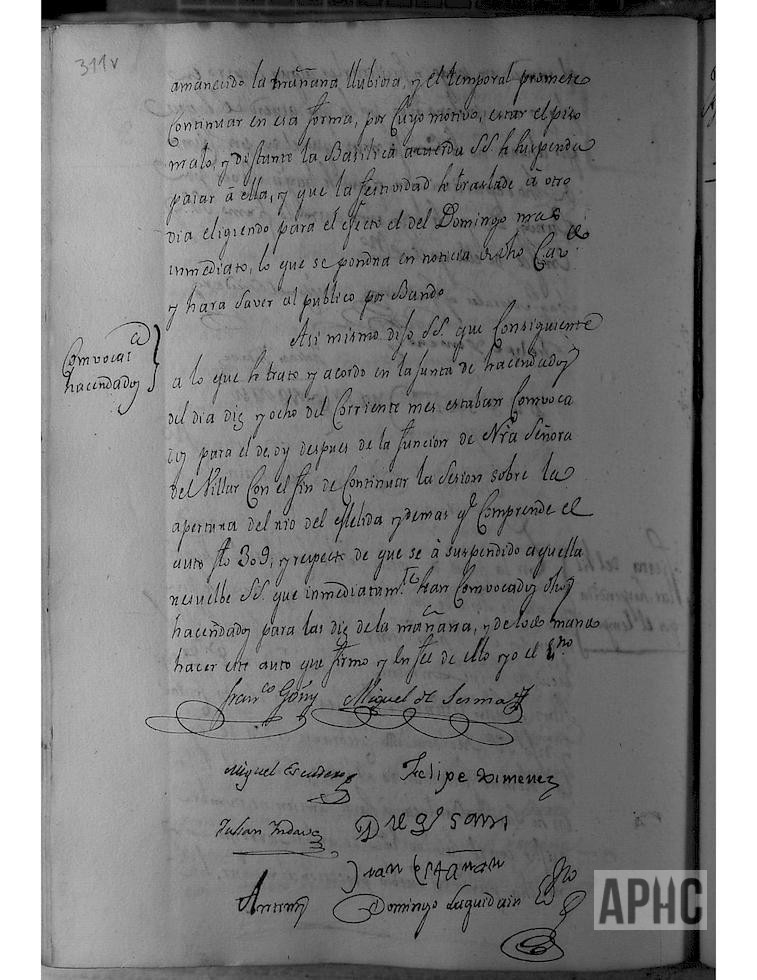 311v
amanecido la mañana llubiosa, y el temporal promete
Continuar en esa forma, por Cuyo motivo, estar el piso
malo, y distante la Basilica acuerda S.S. se suspenda
pasar â ella, y que la festividad se traslade â otro
dia eligiendo para el efecto el del Domingo mas
inmediato, lo que se pondra en noticia de dho Cav.do
y hara saver al publico por Bando
Asi mismo dijo S.S. que Consiguiente
Comvocar
hacendados
a lo que se trato y acordo en la Junta de hacendados
del dia diez y ocho del Corriente mes estaban Comvoca
dos para el de oy despues de la funcion de Nra Señora
del Villar Con el fin de Continuar la Sesion sobre la
apertura del rio del estelida y demas qe Comprende el
auto flo 309, y respecto de que se â suspendido aquella
resuelbe S.S. que inmediatam.te sean Comvocados dhos
hacendados para las diez de la mañana, y de todo mando
hacer este auto que firmo y en fee de ello yo el Sno
Fran.co Goñy Miguel de Sesma
Miguel Escudero Felipe Ximenez
Julian
Juan
Antemi Domingo Luquidain Esno
APHC